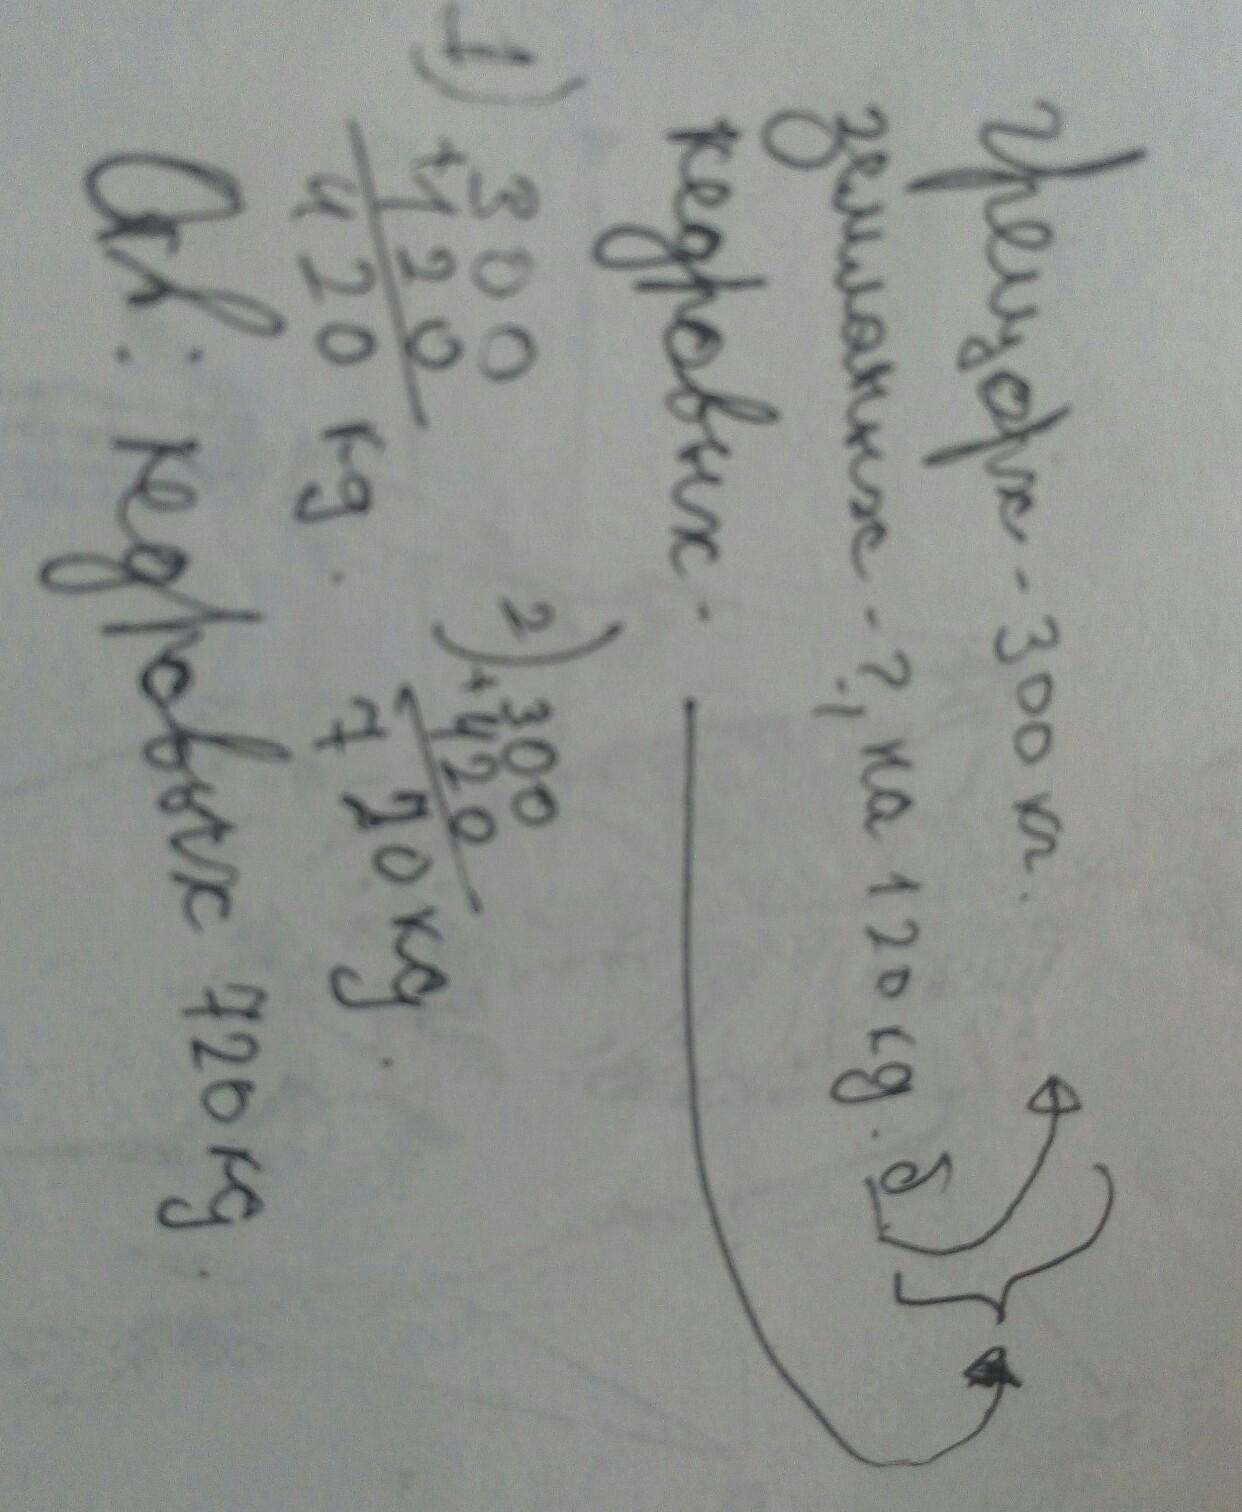 Грецорх - 300 кг.
земланых - ?, на 120 кg. б
кедровых -
1) 300
+120
420 кg.
2) 300
+420
720 кg.
Отв: кедровых 720 кg.